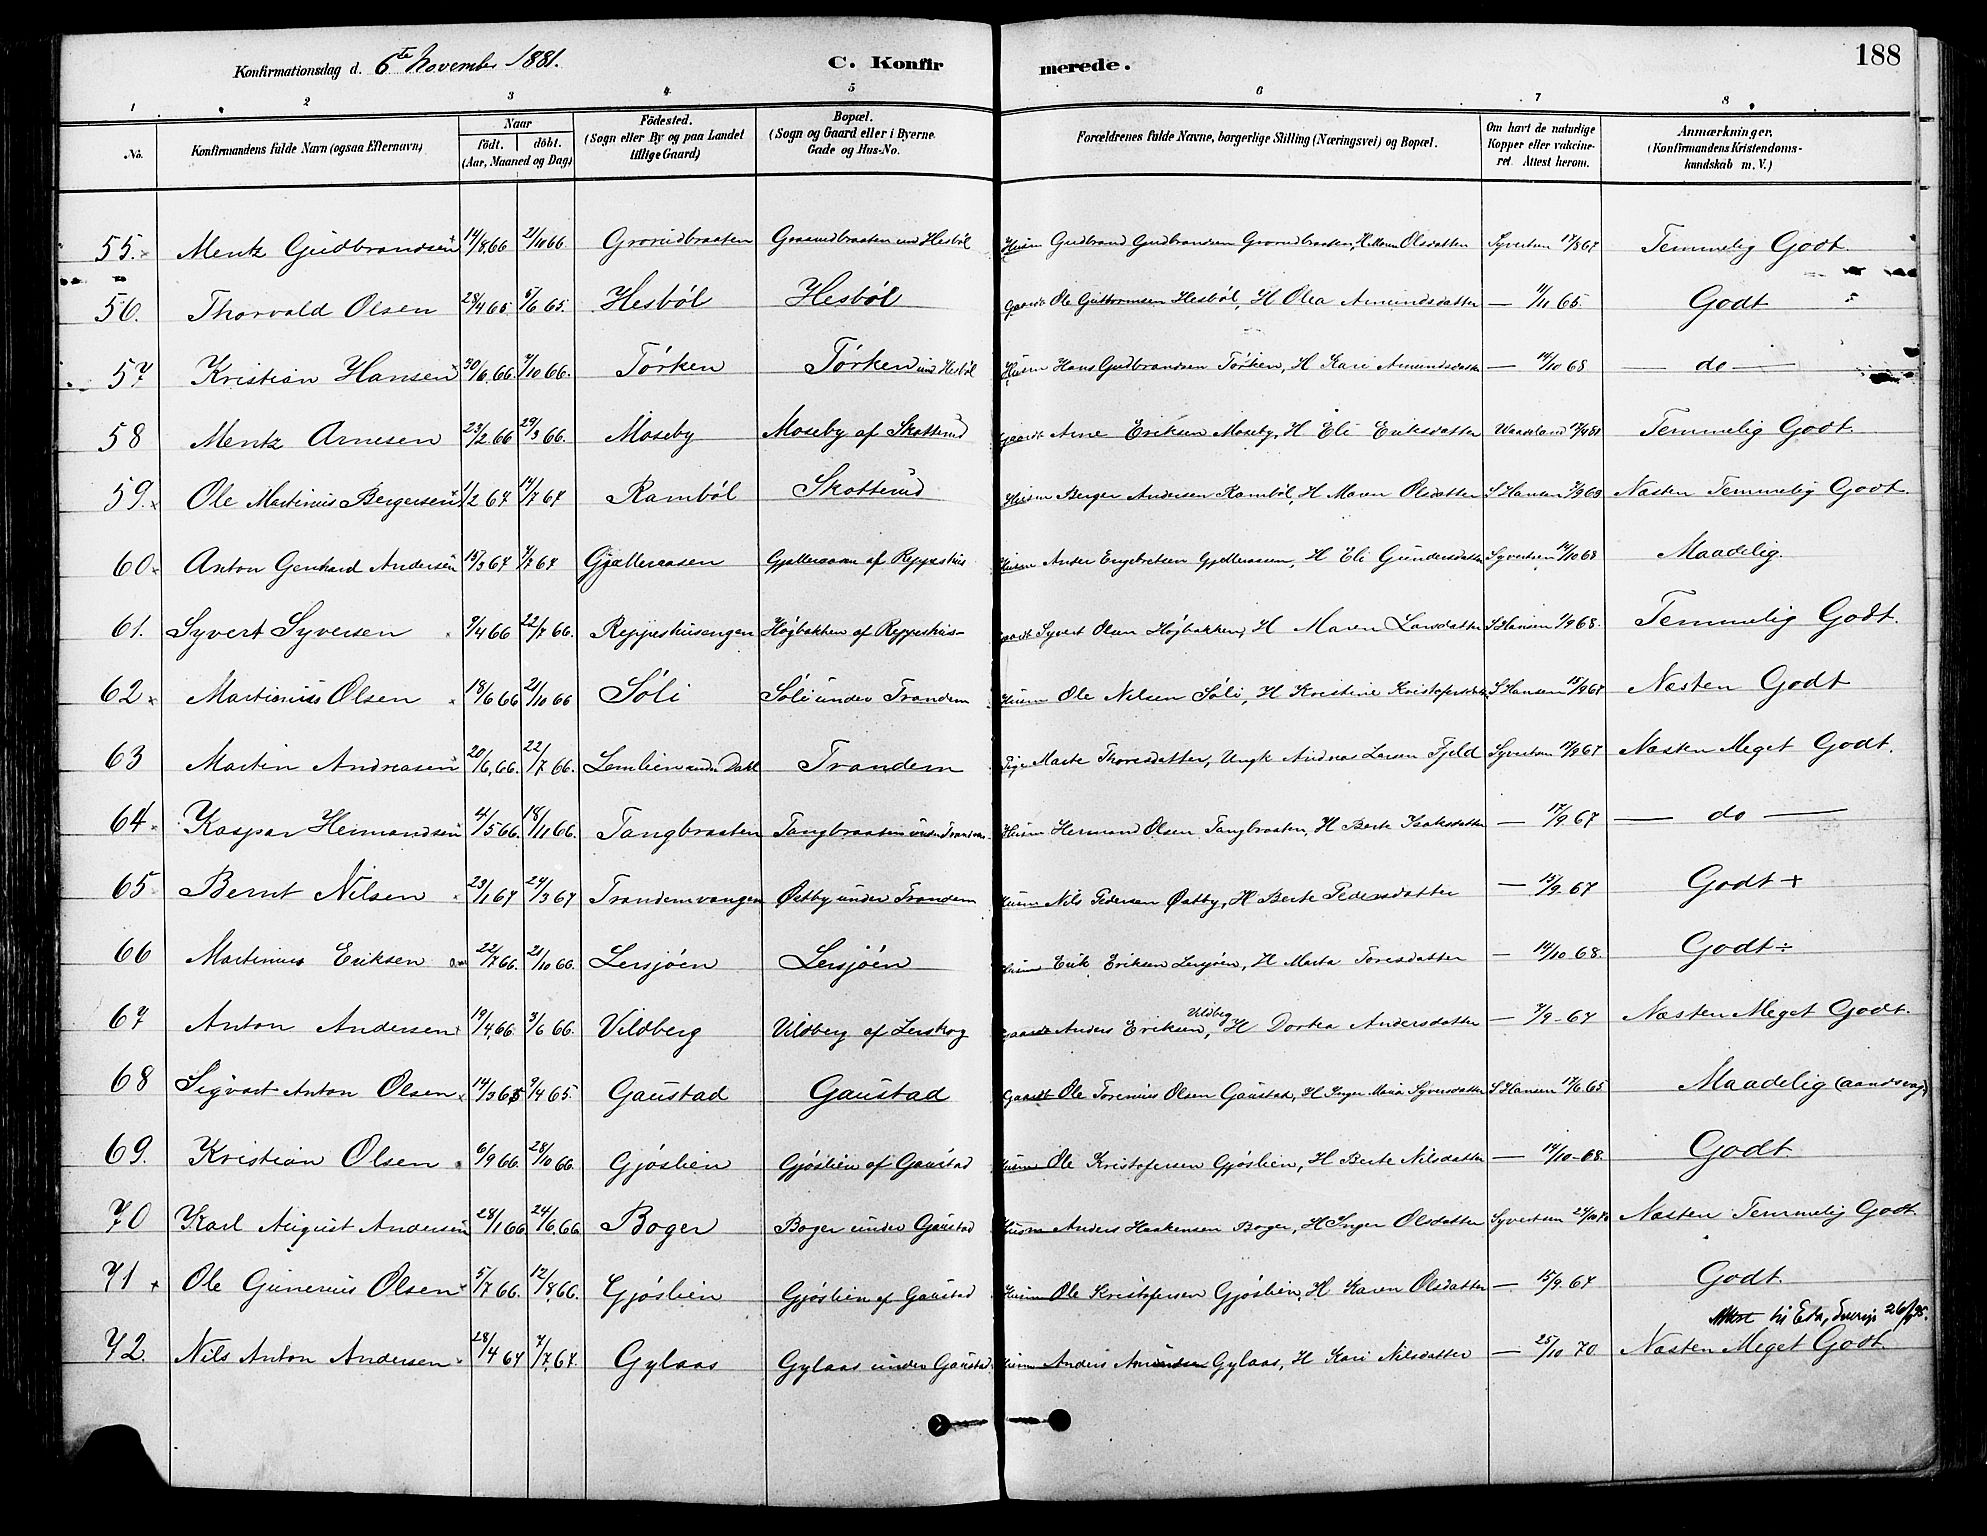 188
Konfirmationsdag d. 6te November 1881. C. Konfirmerede.
1 2 3 4 5 6 7 8
No. Konfirmandens fulde Navn (ogsaa Efternavn) Naar födt. döbt. (Aar, Maaned og Dag) Födested. (Sogn eller By og paa Landet tillige Gaard) Bopæl. (Sogn og Gaard eller i Byerne. Gade og Hus-No. Forældrenes fulde Navne, borgerlige Stilling (Næringsvei) og Bopæl. Om havt de naturlige Kopper eller vakcineret. Attest herom. Anmærkninger. (Konfirmandens Kristendomskundskab m. V.)
55. Mentz Gudbrandsen 14/8 66 21/10 66. Grorudbraaten Grorudbraaten und Hesböl Husm Gudbrand Gudbrandsen Grorudbraaten, H Maren Olsdatter Syvertsen 17/8 67 Temmelig Godt
56. Thorvald Olsen 28/4 65 5/6 65. Hesböl Hesböl Gaardb Ole Guttormsen Hesböl, H Olea Amundsdatter — 11/11 65 Godt
57 Kristian Hansen 30/6 66. 7/10 66. Törken Törken und Hesböl Husm Hans Gudbrandsen Törken, H Kari Amundsdatter — 14/10 68 — do —
58 Mentz Arnesen 23/2 66 29/3 66. Moseby Moseby af Skotterud Gaardb Arne Eriksen Moseby, H Eli Eriksdatter Waaeland 17/4 81 Temmelig Godt.
59. Ole Martinius Bergersen 1/2 67 14/7 67 Ramböl Skotterud Husm Berger Andersen Ramböl, H Maren Olsdatter S Hansen 7/9 69 Næsten Temmelig Godt.
60. Anton Gerhard Andersen 15/3 67 7/7 67 Gjælleraasen Gjælleraasen af Reppeshus Husm Ander Engebretsen Gjelleraasen, H Eli Gundersdatter Syvertsen 14/10 68 Maadelig.
61. Syvert Syversen 9/4 66 22/7 66. Reppeshusengen Höjbakken af Reppeshus Gaardb Syvert Olsen Höjbakken, H Maren Larsdatter S Hansen 1/9 68. Temmelig Godt.
62 Martinius Olsen 18/6 66 21/10 66 Söli Söli under Trandem Husm Ole Nilsen Söli, H Kristine Kristofersdatter S Hansen 15/9 67 Næsten Godt
63 Martin Andreasen 20/6 66. 22/7 66. Lemlien under Dahl Trandem Pige Marte Thoresdatter, Ungk Andreas Larsen Fjeld Syvertsen 17/9 67 Næsten Meget Godt.
64. Kaspar Hermandsen 4/5 66. 18/11 66. Tangbraaten Tangbraaten under Trandem Husm Hermand Olsen Tangbraaten, H Berte Isaksdatter — 17/9 67 — do —
65 Bernt Nilsen 23/1 67 24/3 67 Trandemvangen Østby under Trandem Husm Nils Pedersen Østby, H Berte Pedersdatter — 15/9. 67 Godt +
66 Martinius Eriksen 22/7 66. 21/10 66. Lersjöen Lersjöen Husm Erik Eriksen Lersjöen, H Marta Toresdatter — 14/10 68. Godt ÷
67 Anton Andersen 19/4 66. 3/6 66. Vildberg Vildberg af Lerskog Gaardb Anders Eriksen Vildberg, H Dortea Andersdatter — 7/9 - 67 Næsten Meget Godt.
68 Sigvart Anton Olsen 14/3 65 9/4 65. Gaustad Gaustad Gaardb Ole Torenius Olsen Gaustad, H Inger Maria Syversdatter S Hansen 17/6 65 Maadelig (aandssvag)
69. Kristian Olsen 6/9 66. 28/10 66. Gjöslien Gjöslien af Gaustad Husm Ole Kristofersen Gjöslien, H Berte Nilsdatter — 14/10 - 68. Godt.
70 Karl August Andersen 28/1 66 24/6 66. Boger Boger under Gaustad Husm Anders Haakensen Boger, H Inger Olsdatter Syvertsen Næsten Temmelig Godt.
71 Ole Gunerius Olsen 5/7 66. 12/8 66. Gjöslien Gjöslien af Gaustad Husm Ole Kristofersen Gjöslien, H Karen Olsdatter — 15/9. 67 Godt.
til Eda, Sverige
72. Nils Anton Andersen 28/4 67 7/7 67. Gylaas Gylaas under Gaustad. Husm Anders Amundsen Gylaas, H Kari Nilsdatter — 25/10 70 Næsten Meget Godt